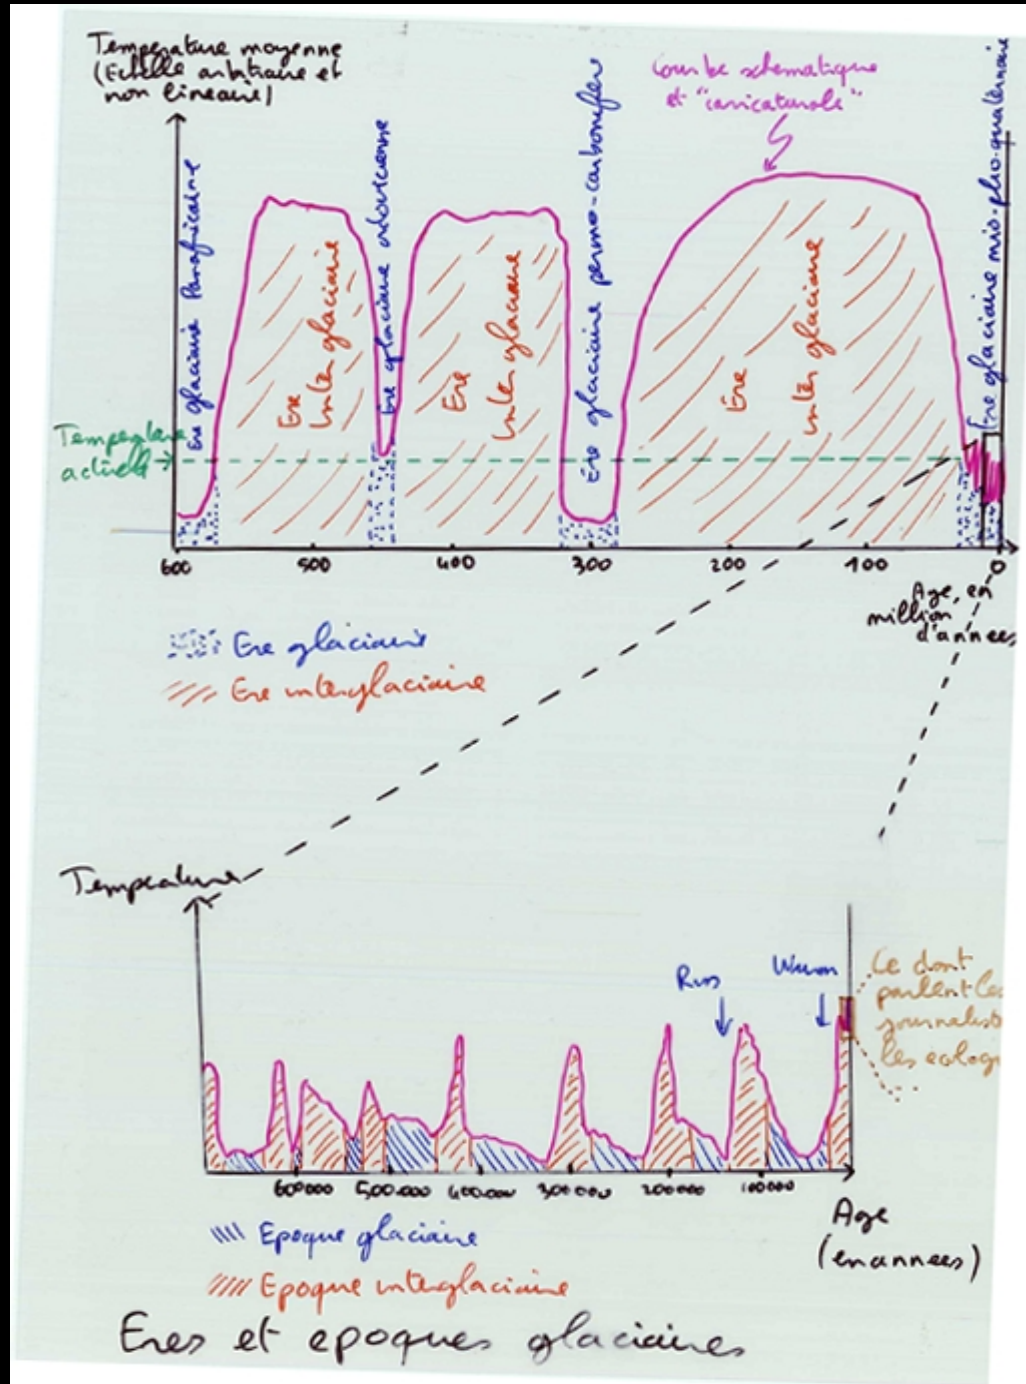 Temperature moyenne
(Echelle arbitraire et
non lineaire)
Courbe schematique
et "caricaturale"
Ere glaciaire Panafricaine
Ere
Inter glaciaire
Ere glaciaire ordovicienne
Ere
Inter glaciaire
Ere glaciaire permo-carbonifère
Ere
inter glaciaire
Ere glaciaire mio-plio-quaternaire
Temperature
actuelle
600 500 400 300 200 100 0
Age, en
million
d'annees
Ere glaciaire
Ere interglaciaire
Temperature
Riss
Wurm
Ce dont
parlent les
journalist
les ecolog
600000 500.000 400.000 300.000 200000 100000
Age
(en annees)
Epoque glaciaire
Epoque interglaciaire
Eres et epoques glaciaires